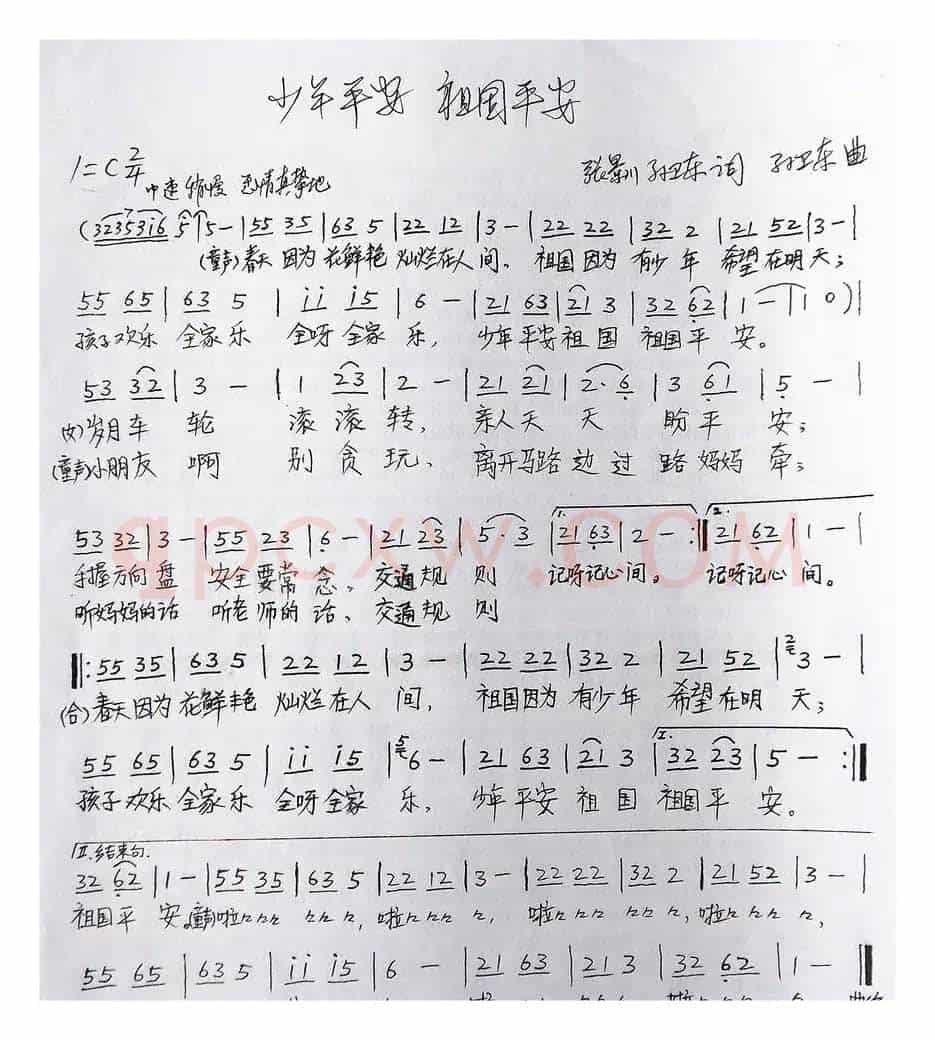 少年平安 祖国平安
1=C 2/4
中速稍慢 热情真挚地
张景川 孙卫东 词 孙卫东 曲
(32353i6 5 | 5 - | 55 35 | 63 5 | 22 12 | 3 - | 22 22 | 32 2 | 21 52 | 3 - |
(童声)春天因为花鲜艳 灿烂在人间。 祖国因为有少年 希望在明天;
55 65 | 63 5 | ii i5 | 6 - | 21 63 | 21 3 | 32 62 | 1 - | 1 0) |
孩子欢乐 全家乐 全呀全家乐, 少年平安祖国 祖国平安。
53 32 | 3 - | 1 23 | 2 - | 21 21 | 2· 6 | 3 61 | 5 - |
(女)岁月车轮 滚滚转, 亲人天天盼平安;
(童声)小朋友啊 别贪玩、 离开马路边过路妈妈牵;
qpcxw.com
53 32 | 3 - | 55 23 | 6 - | 21 23 | 5· 3 | 1. 21 63 | 2 - :‖ 2. 21 62 | 1 - |
手握方向盘 安全要常念、 交通规则 记呀记心间。 记呀记心间。
听妈妈的话 听老师的话、 交通规则
‖: 55 35 | 63 5 | 22 12 | 3 - | 22 22 | 32 2 | 21 52 | 2 3 - |
(合)春天因为花鲜艳 灿烂在人间, 祖国因为有少年 希望在明天;
55 65 | 63 5 | ii i5 | 5 6 - | 21 63 | 21 3 | I. 32 23 | 5 - :‖
孩子欢乐 全家乐 全呀全家乐, 少年平安祖国 祖国平安。
II.结束句.
32 62 | 1 - | 55 35 | 63 5 | 22 12 | 3 - | 22 22 | 32 2 | 21 52 | 3 - |
祖国平安。(童声)啦々々々 々々々, 啦々々々々, 啦々々々 々々々, 啦々々々々,
55 65 | 63 5 | ii i5 | 6 - | 21 63 | 21 3 | 32 62 | 1 - ‖